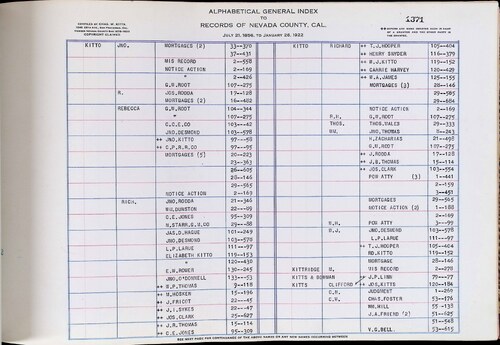 ALPHABETICAL GENERAL INDEX
TO
RECORDS OF NEVADA COUNTY, CAL.
JULY 21, 1856, TO JANUARY 26, 1922
1371
COPYRIGHT CLAIMED
KITTO JNO. MORTGAGES (2) 33--370
37--431
MIS RECORD 2--558
NOTICE ACTION 2--169
" 2--426
G.N.ROOT 107--275
N. JOS.RODDA 17--128
MORTGAGES (2) 16--482
REBECCA G.N.ROOT 104--344
" 107--275
C.C.E.CO 103--442
JNO.DESMOND 103--578
++ JNO.KITTO 97---58
++ C.P.R.R.CO 97---95
MORTGAGES (5) 20--223
23--363
26--605
28--146
29--565
NOTICE ACTION 2--169
RACH. JNO.RODDA 21--346
WM.DUNSTON 22---09
C.E.JONES 95--309
N.STARR,G.M.CO 29---88
JAS.D.HAGUE 101--249
JNO.DESMOND 103--578
L.P.LARUE 111---97
ELIZABETH KITTO 119--153
" 120--430
E.W.ROWER 130--245
JNO.O'DONNELL 133--53
++ R.P.THOMAS 9--118
++ W.HOSKER 15--196
++ J.FRICOT 22---45
++ J.I.SYKES 22---47
++ JOS.CLARK 25--627
++ J.R.THOMAS 15--114
++ C.E.JONES 95--309
KITTO RICHARD ++ T.J.HOOPER 105--404
++ HENRY SNYDER 116--379
++ R.J.KITTO 119--152
++ CARRIE HARVEY 120--429
++ W.A.JAMES 125--155
MORTGAGES (3) 28--146
29--565
29--684
NOTICE ACTION 2--169
R.H. G.N.ROOT 107--275
THOS. THOS.WALES 29--333
WM. JNO.THOMAS 8--243
H.ZACHARIAS 21--498
G.N.ROOT 107--275
++ J.RODDA 17--128
++ J.R.THOMAS 15--114
++ JOS.CLARK 103--554
POR ATTY (3) 1--441
2--159
3--451
MORTGAGES 29--565
NOTICE ACTION (2) 1--188
2--169
W.H. POR ATTY 3---99
W.J. JNO.DESMOND 103--578
L.P.LARUE 111---97
++ T.J.HOOPER 105--404
RD.KITTO 119--152
MORTGAGE 28--146
KITTRIDGE M. MIS RECORD 2--270
KITTS & BOWMAN ++ J.P.LINN 77---27
KITTS CLIFFORD ++ JOS.KITTS 120--184
C.N. JUDGMENT 1--260
E.H. CHAS.FOSTER 53--176
WM.HILL 55--138
J.A.FRIEND (2) 51--625
51--648
V.G.BELL 53--615
SEE NEXT PAGE FOR CONTINUANCE OF THE ABOVE NAMES OR ANY NEW NAMES OCCURRING BETWEEN